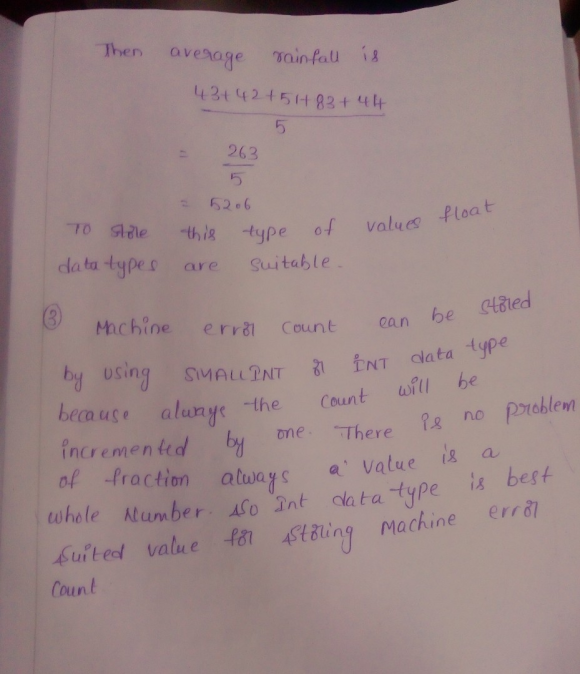 Then average rainfall is
43+42+51+83+44
5
= 263
5
= 52.6
To store this type of values float
data types are suitable.
③ Machine error count can be stored
by using SMALLINT or INT data type
because always the count will be
incremented by one. There is no problem
of fraction always a value is a
whole Number. so Int data type is best
suited value for storing Machine error
count